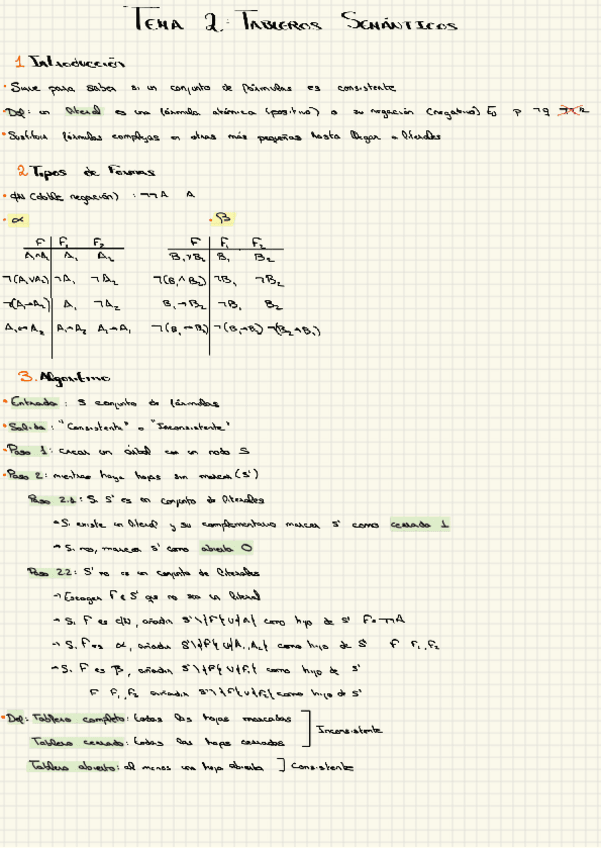 TEMA 2: TABLEROS SEMÁNTICOS
1 Introducción
• Sirve para saber si un conjunto de fórmulas es consistente
• Def: un literal es una fórmula atómica (positivo) o su negación (negativo) Ej p ¬q
• Sustituir fórmulas complejas en otras más pequeñas hasta llegar a literales
2 Tipos de Formas
• dN (doble negación) : ¬¬A A
• α • β
F F₁ F₂ F F₁ F₂
A₁∧A₂ A₁ A₂ B₁∨B₂ B₁ B₂
¬(A₁∨A₂) ¬A₁ ¬A₂ ¬(B₁∧B₂) ¬B₁ ¬B₂
¬(A₁→A₂) A₁ ¬A₂ B₁→B₂ ¬B₁ B₂
A₁↔A₂ A₁→A₂ A₂→A₁ ¬(B₁↔B₂) ¬(B₁→B₂) ¬(B₂→B₁)
3. Algoritmo
• Entrada : S conjunto de fórmulas
• Salida : "Consistente" o "Inconsistente"
• Paso 1: crear un árbol con un nodo S
• Paso 2: mientras haya hojas sin marcar (S')
Paso 2.1: Si S' es un conjunto de literales
→ Si existe un literal y su complementario marcar S' como cerrada 1
→ Si no, marcar S' como abierta O
Paso 2.2: S' no es un conjunto de literales
→ Escoger F∈S' que no sea un literal
→ Si F es dN, añadir S'\{F}∪{A} como hijo de S' F=¬¬A
→ Si F es α, añadir S'\{F}∪{A₁,A₂} como hijo de S' F F₁,F₂
→ Si F es β, añadir S'\{F}∪{F₁} como hijo de S'
F F₁,F₂ añadir S'\{F}∪{F₂} como hijo de S'
• Def: Tablero completo: todas las hojas marcadas
Inconsistente
Tablero cerrado: todas las hojas cerradas
Tablero abierto: al menos una hoja abierta ] Consistente